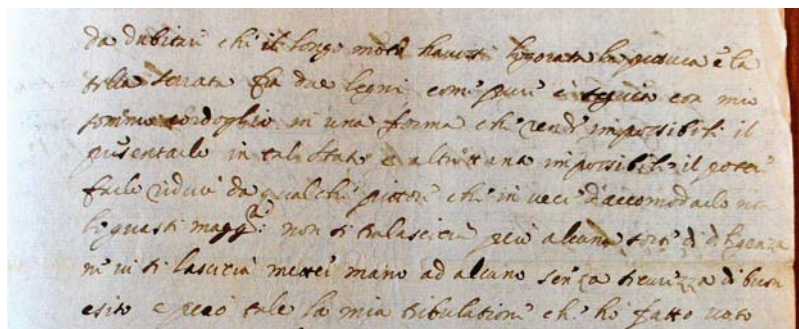 da dubitari chi il longo moto havesse logorata la pittura e la
tella serrata fra due legni come pure è seguito con mio
sommo cordoglio in una forma che rende impossibile il
presentarlo in tale stato e altretanto impossibile il poter
farlo ridurre da qualche pittore che in vece d'accomodarlo non
lo guasti magg.te non si tralascierà però alcuna sorte di diligenza
ne vi si lascierà metter mano ad alcuno senza sicurezza di buon
esito e però tale la mia tribulatione che ho fatto voto